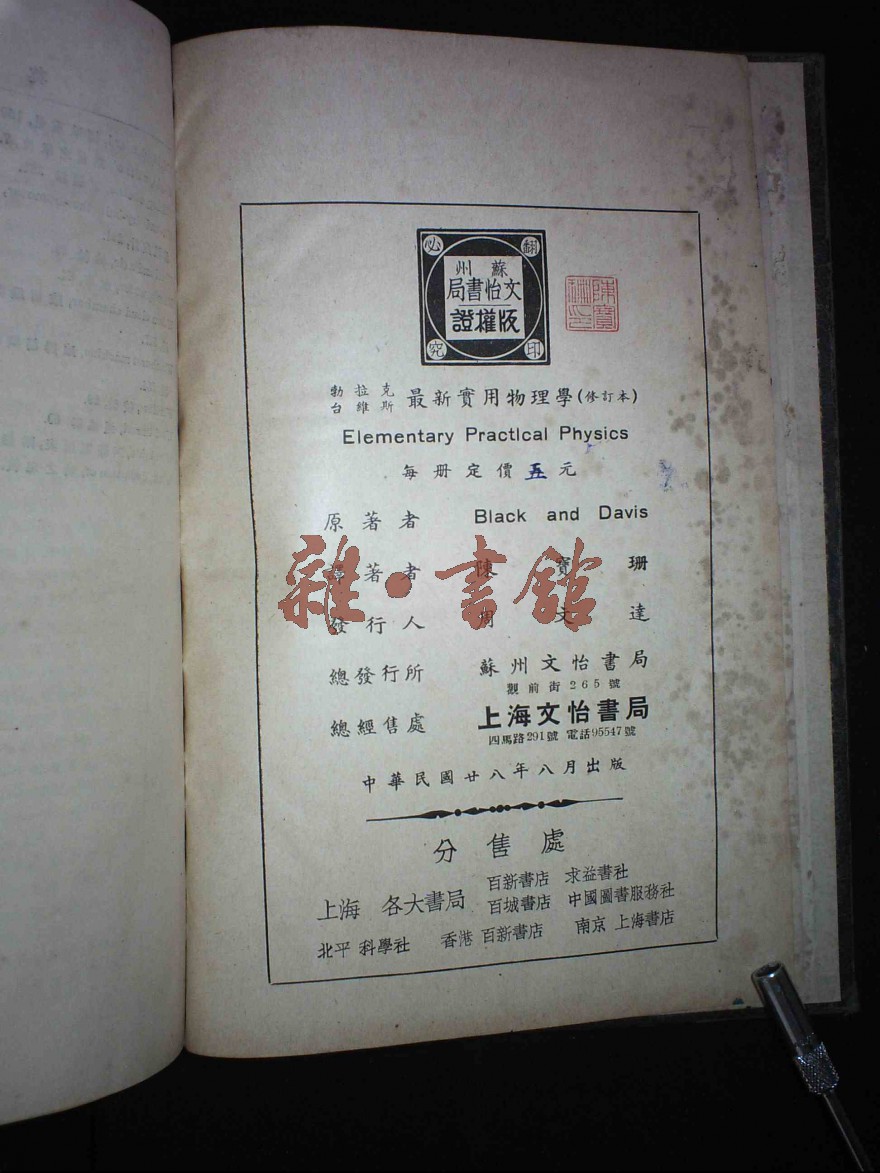 必 翻
蘇州
文怡書局
版權證
究 印
陳寶珊印
勃拉克
台維斯 最新實用物理學(修訂本)
Elementary Practical Physics
每册定價五元
原著者 Black and Davis
譯著者 陳寶珊
發行人 周文達
總發行所 蘇州文怡書局
觀前街265號
總經售處 上海文怡書局
四馬路291號 電話95547號
中華民國廿八年八月出版
分售處
百新書店 求益書社
上海 各大書局 百城書店 中國圖書服務社
北平 科學社 香港 百新書店 南京 上海書店
雜·書館